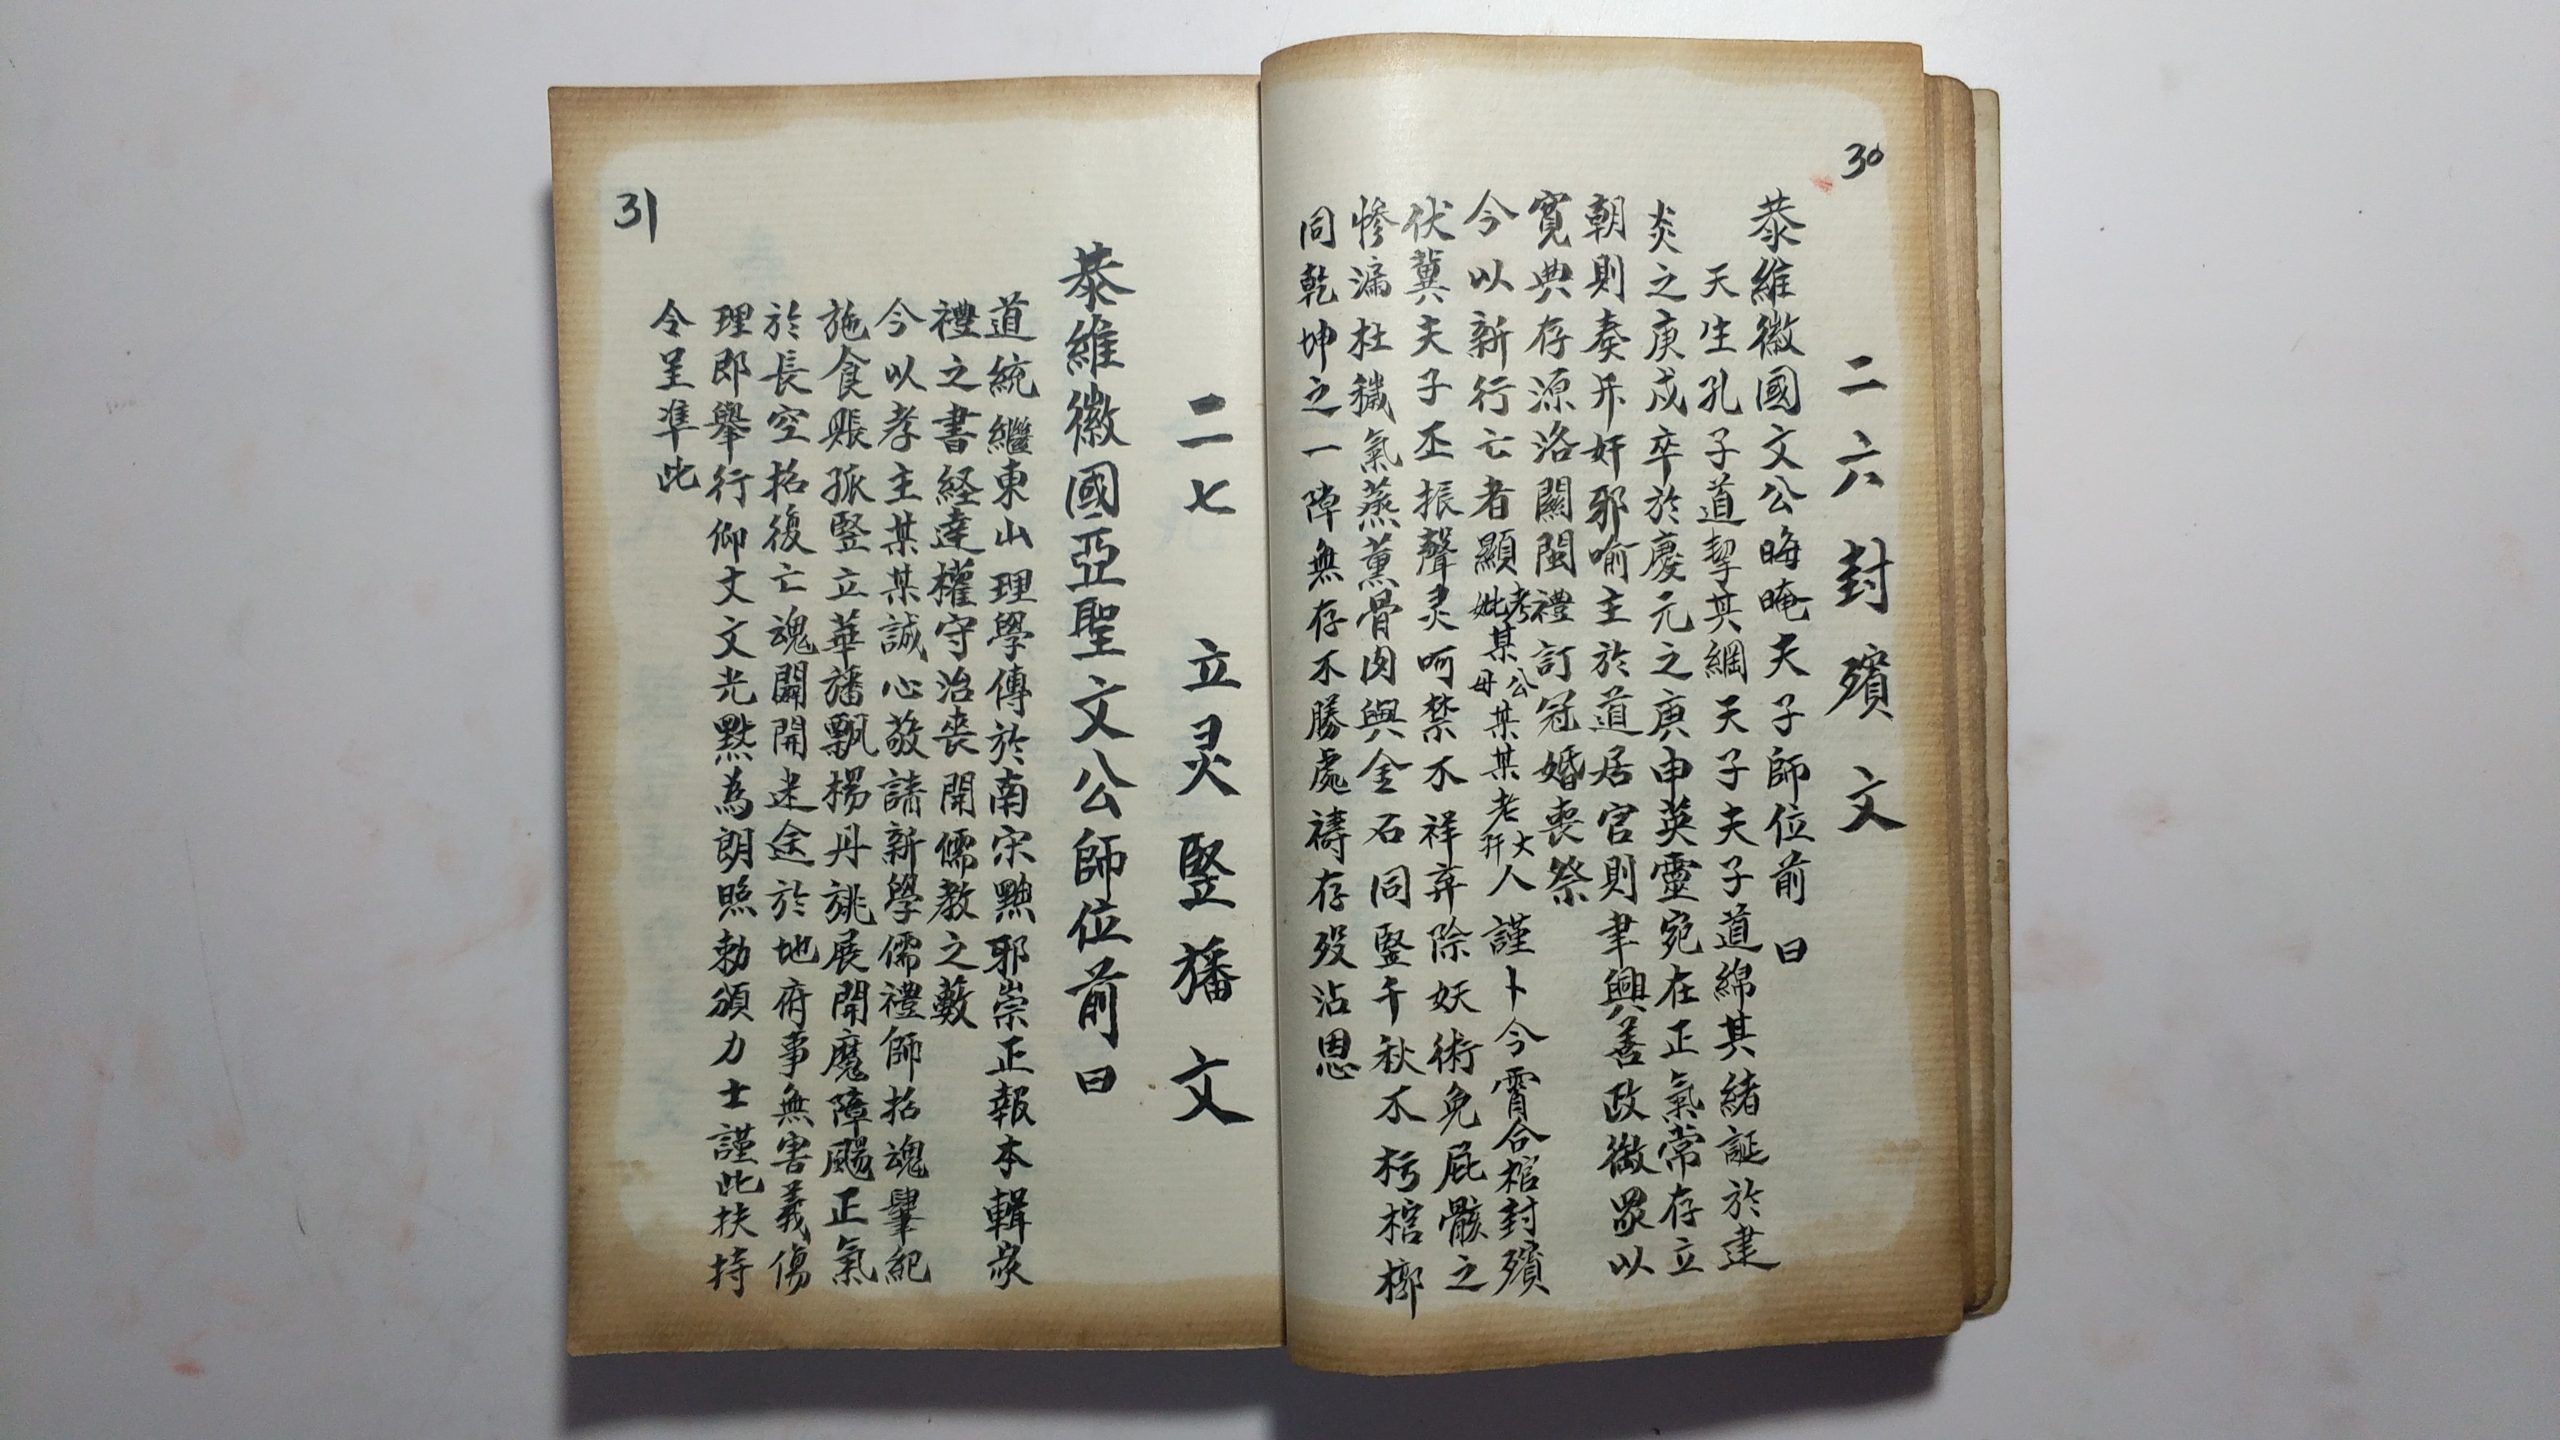 30
二六封殯文
恭維徽國文公晦晻夫子師位前曰
天生孔子道挈其綱天子夫子道綿其緒誕於建
炎之庚戍卒於慶元之庚申英靈宛在正氣常存立
朝則奏斥奸邪喻主於道居官則聿興善政徽眾以
寬典存源洛關閩禮訂冠婚喪祭
今以新行亡者顯考妣某公母某某老大孺人謹卜今霄合棺封殯
伏冀夫子丕振聲灵呵禁不祥弃除妖術免屍骸之
慘漏杜穢氣蒸薰骨肉與金石同堅千秋不朽棺槨
同乾坤之一障無存不勝處禱存歿沾恩
二七 立灵竪旙文
恭維徽國亞聖文公師位前曰
道統繼東山理學傳於南宋黜邪崇正報本輯家
禮之書経達權守治喪開儒教之藪
今以孝主某某誠心敬請新學儒禮師招魂肇紀
施食賬孤竪立華旙飄楊丹旐展開魔障颺正氣
於長空招復亡魂闢開迷途於地府事無害義傷
理即舉行仰丈文光㸃為朗照勅頒力士謹此扶持
令呈準此
31